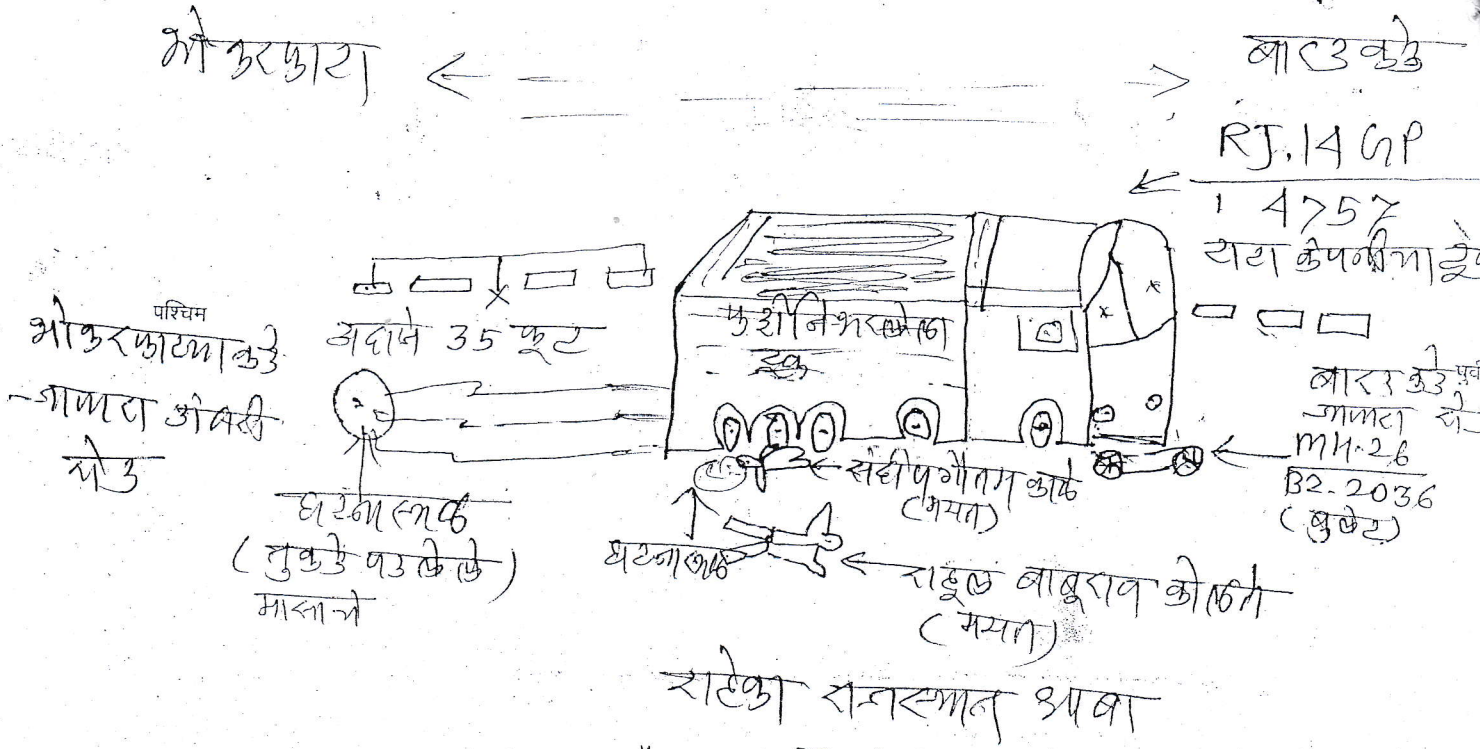 भोकरफाटा
बारडकडे
RJ.14 GP
4757
टाटा कंपनीचा
पश्चिम
भोकरफाट्याकडे
जाणारा
रोड
अंदाजे 35 फूट
फरशीने भरलेला
ट्रक
बारडकडे पूर्व
जाणारा रो
MH-26
BZ-2036
(बुलेट)
संदीप गौतम काळे
(मयत)
घटनास्थळ
(तुकडे पडलेले)
मासाचे
घटनास्थळ
राहूल बाबूराव कोलते
(मयत)
राजस्थान ढाबा